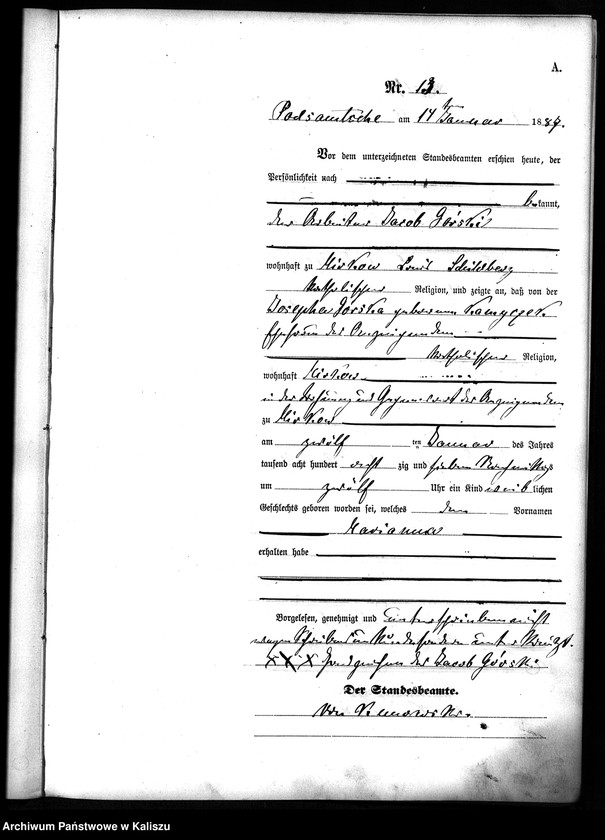 A.
Nr. 13.
Podsamtsche am 14 ten Januar 1887.
Vor dem unterzeichneten Standesbeamten erschien heute, der
Persönlichkeit nach
bekannt,
der Arbeiter Jacob Górski
wohnhaft zu Mirkow Kreis Schildberg
katholischer Religion, und zeigte an, daß von der
Josepha Górska geborenen
Ehefrau des Anzeigenden
katholischer Religion,
wohnhaft Mirkow
in der Wohnung und Gegenwart des Anzeigenden
zu Mirkow
am zwölf ten Januar des Jahres
tausend acht hundert acht zig und sieben Nachmittags
um zwölf Uhr ein Kind weib lichen
Geschlechts geboren worden sei, welches den Vornamen
Marianna
erhalten habe
Vorgelesen, genehmigt und
wegen Schreibens
X X X Handzeichen des Jacob Górski
Der Standesbeamte.
Archiwum Państwowe w Kaliszu